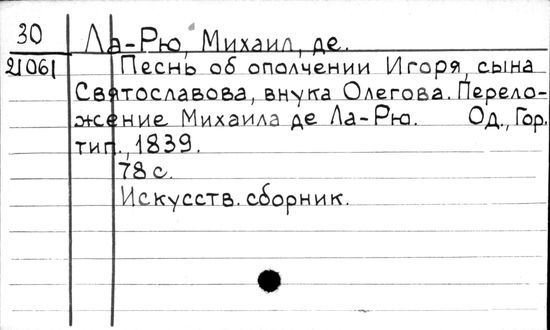 30 Ла-Рю, Михаил, де.
21061 Песнь об ополчении Игоря, сына
Святославова, внука Олегова. Перело-
жение Михаила де Ла-Рю. Од., Гор.
тип., 1839.
78 с.
Искусств. сборник.